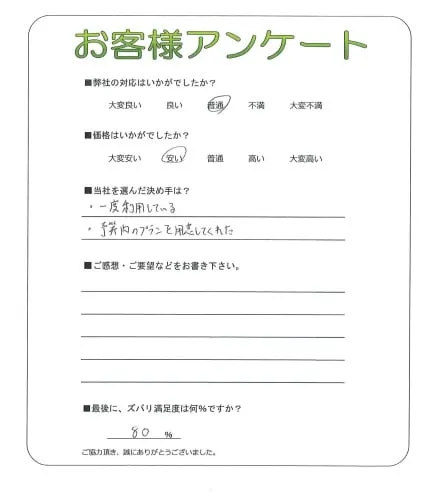 お客様アンケート
■弊社の対応はいかがでしたか？
大変良い 良い 普通 不満 大変不満
■価格はいかがでしたか？
大変安い 安い 普通 高い 大変高い
■当社を選んだ決め手は？
・一度利用している
・予算内のプランを用意してくれた
■ご感想・ご要望などをお書き下さい。
■最後に、ズバリ満足度は何%ですか？
80 %
ご協力頂き、誠にありがとうございました。